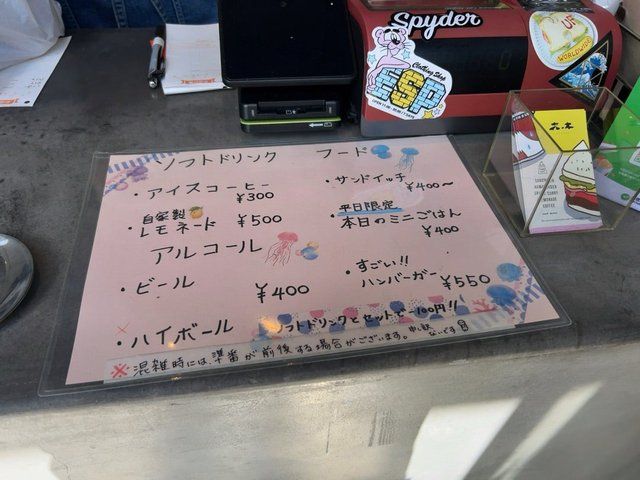 Spyder
Clothing Shop
ESP
UF
WORLDWIDE
ソフトドリンク
・アイスコーヒー
¥300
・自家製
レモネード ¥500
アルコール
・ビール ¥400
・ハイボール
フード
・サンドイッチ
¥400〜
平日限定
・本日のミニごはん
¥400
・すごい!!
ハンバーガー ¥550
ソフトドリンクとセットで-100円!!
※混雑時には、準備が前後する場合がございます。申し訳ないです